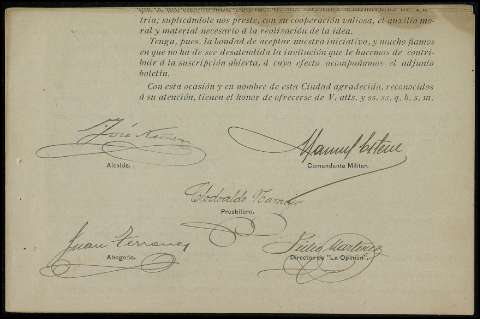 tria; suplicándole nos preste, con su cooperación valiosa, el auxilio mo-
ral y material necesario á la realización de la idea.
Tenga, pues, la bondad de aceptar nuestra iniciativa, y mucho fiamos
en que no ha de ser desatendida la invitación que le hacemos de contri-
buir á la suscripción abierta, á cuyo efecto acompañamos el adjunto
boletín.
Con esta ocasión y en nombre de esta Ciudad agradecida, reconocidos
á su atención, tienen el honor de ofrecerse de V. atts. y ss. ss. q. b. s. m.
José
Manuel
Alcalde.
Comandante Militar.
Clodoaldo
Presbítero.
Juan
Julio Martínez
Abogado.
Director de "La Opinión".